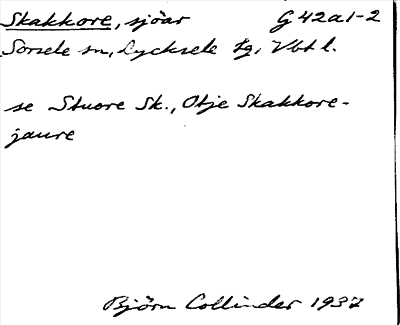 Skakkore, sjöar G 42a1-2
Sorsele sn, Lycksele lg, Vbtl.
se Stuore Sk., Otje Skakkore-
jaure
Björn Collinder 1937